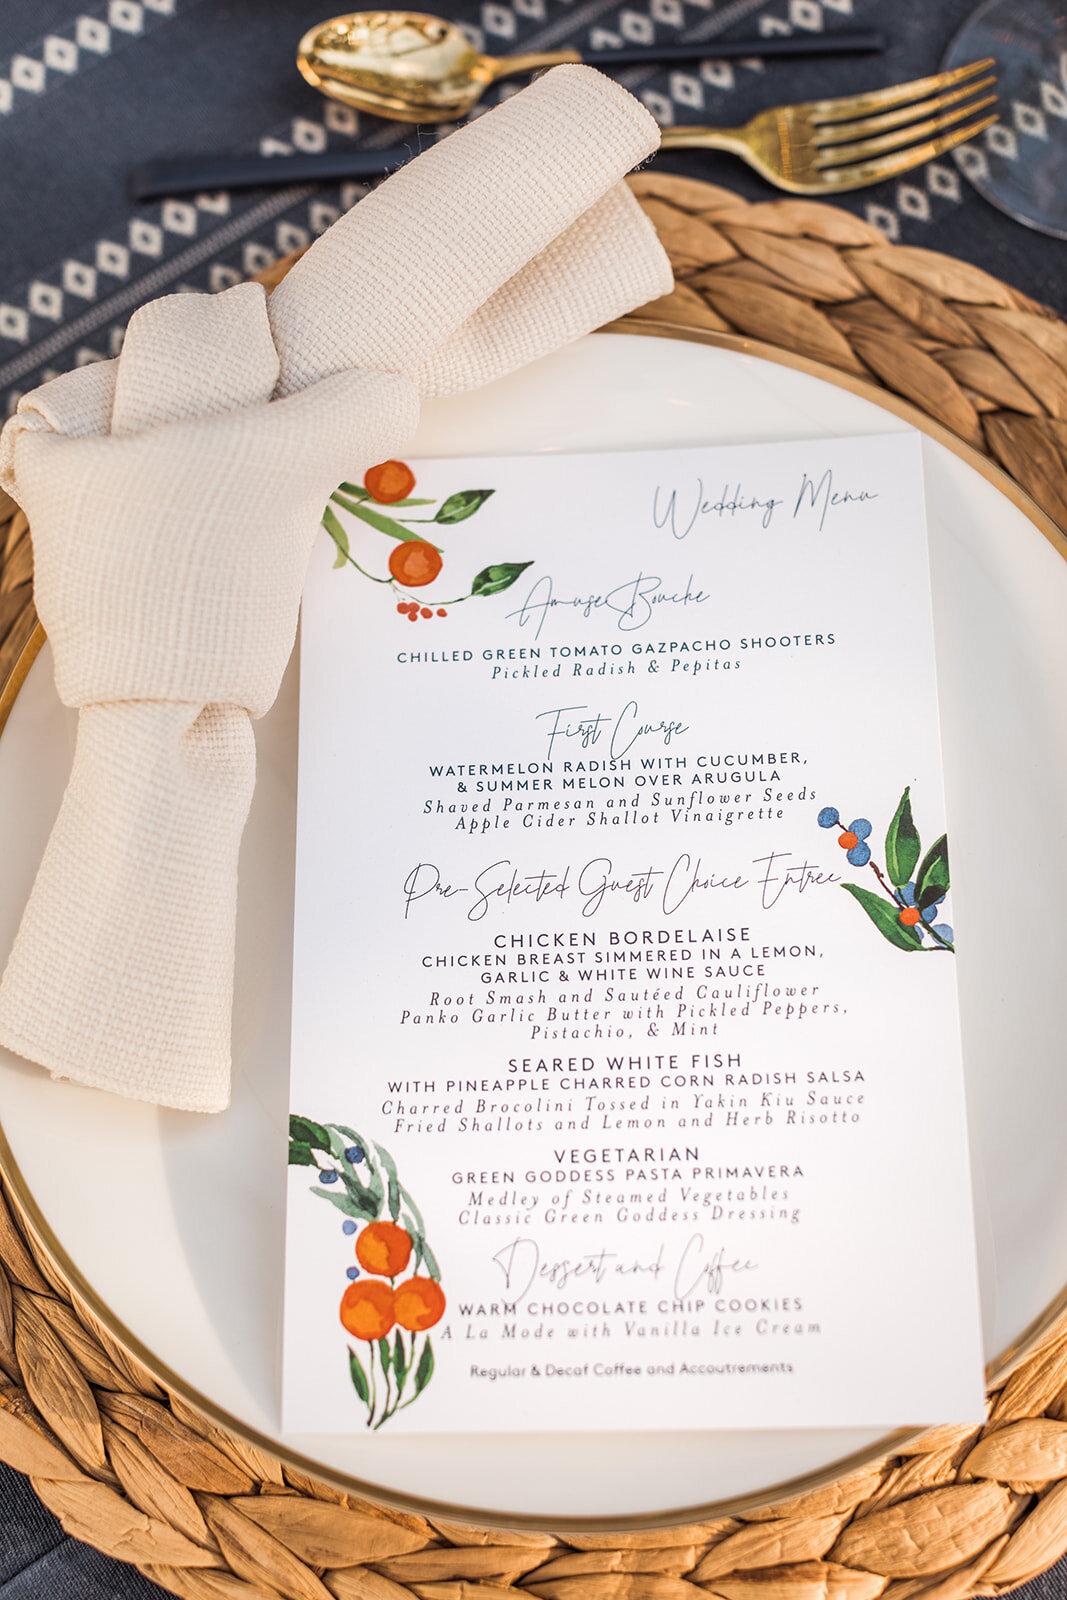 Wedding Menu
Amuse Bouche
CHILLED GREEN TOMATO GAZPACHO SHOOTERS
Pickled Radish & Pepitas
First Course
WATERMELON RADISH WITH CUCUMBER,
& SUMMER MELON OVER ARUGULA
Shaved Parmesan and Sunflower Seeds
Apple Cider Shallot Vinaigrette
Pre-Selected Guest Choice Entree
CHICKEN BORDELAISE
CHICKEN BREAST SIMMERED IN A LEMON,
GARLIC & WHITE WINE SAUCE
Root Smash and Sautéed Cauliflower
Panko Garlic Butter with Pickled Peppers,
Pistachio, & Mint
SEARED WHITE FISH
WITH PINEAPPLE CHARRED CORN RADISH SALSA
Charred Brocolini Tossed in Yakin Kiu Sauce
Fried Shallots and Lemon and Herb Risotto
VEGETARIAN
GREEN GODDESS PASTA PRIMAVERA
Medley of Steamed Vegetables
Classic Green Goddess Dressing
Dessert and Coffee
WARM CHOCOLATE CHIP COOKIES
A La Mode with Vanilla Ice Cream
Regular & Decaf Coffee and Accoutrements